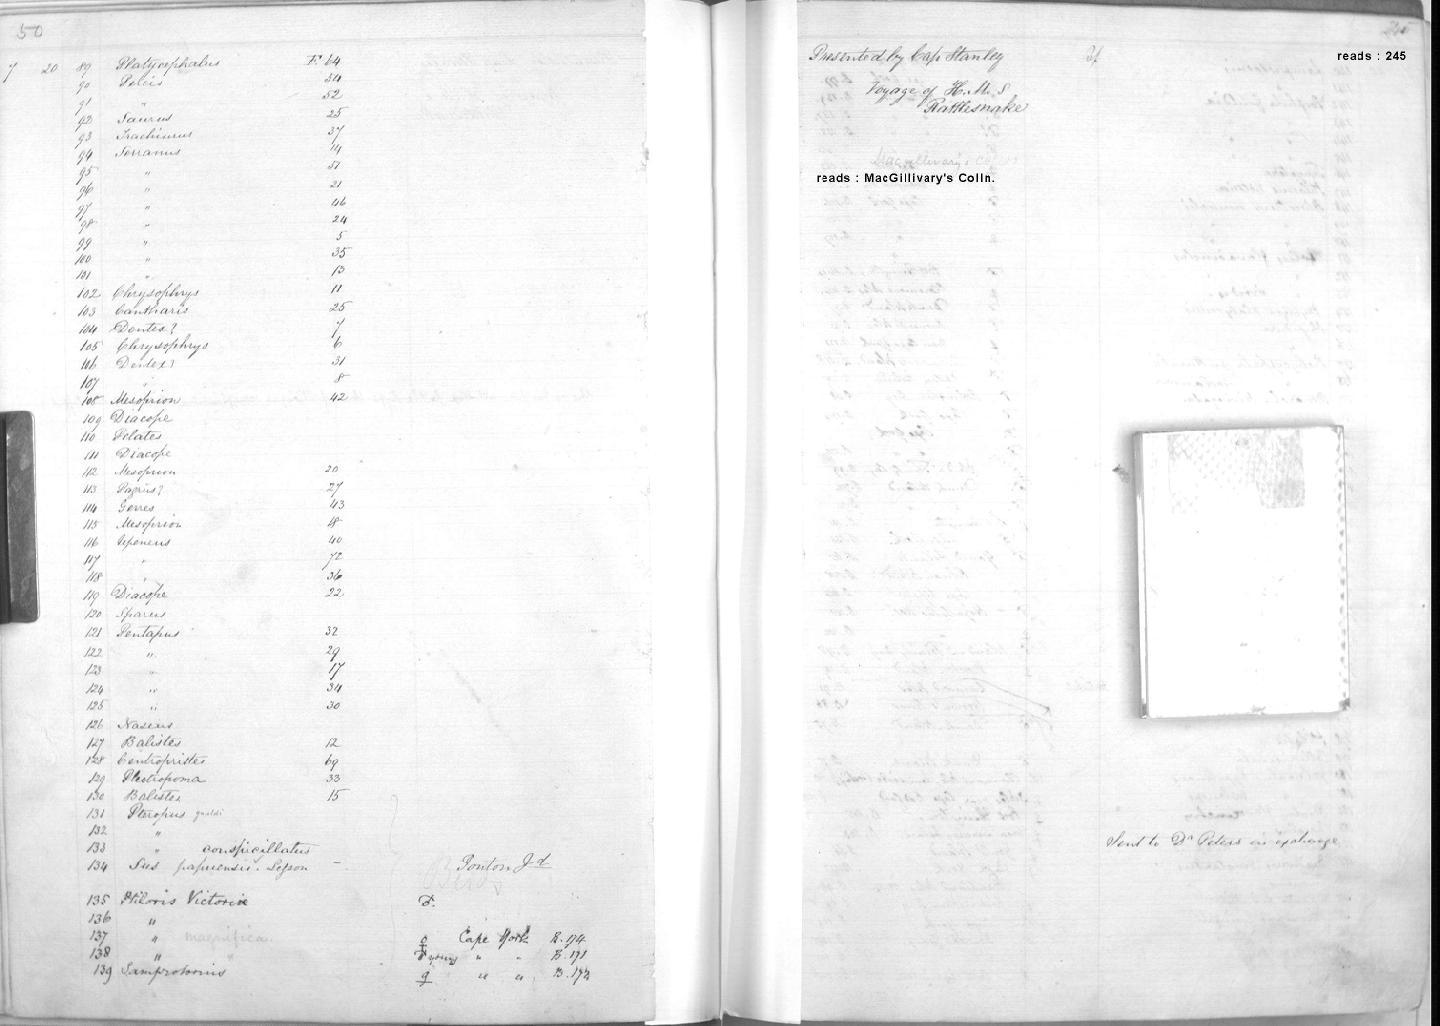 50
7 20 89 Platycephalus F. 64
90 Percis 54
91 " 52
92 Saurus 25
93 Trachinurus 37
94 Serranus 14
95 " 51
96 " 21
97 " 46
98 " 24
99 " 5
100 " 35
101 " 13
102 Chrysophrys 11
103 Cantharis 25
104 Dentex? 7
105 Chrysophrys 6
106 Dentex? 31
107 " 8
108 Mesoprion 42
109 Diacope
110 Pelates
111 Diacope
112 Mesoprion 20
113 Pagrus? 27
114 Gerres 43
115 Mesoprion 18
116 Upeneus 40
117 " 72
118 " 36
119 Diacope 22
120 Sparus
121 Pentapus 32
122 " 29
123 " 17
124 " 34
125 " 30
126 Naseus
127 Balistes 12
128 Centropristes 69
129 Plectropoma 33
130 Balistes 15
131 Pteropus
132 "
133 " conspicillatus
134 Sus papuensis. Lesson -
Birds
135 Ptiloris Victoriæ ♂.
136 "
137 " magnifica. ♀ Cape York B. 174
138 " " ♂ young " " B. 171
139 Lamprotornis ♀ " " B. 172
245
Presented by Cap Stanley
reads : 245
Voyage of H.M.S
Rattlesnake
MacGillivary's Colln
reads : MacGillivary's Colln.
Sent to Dr Peters in exchange